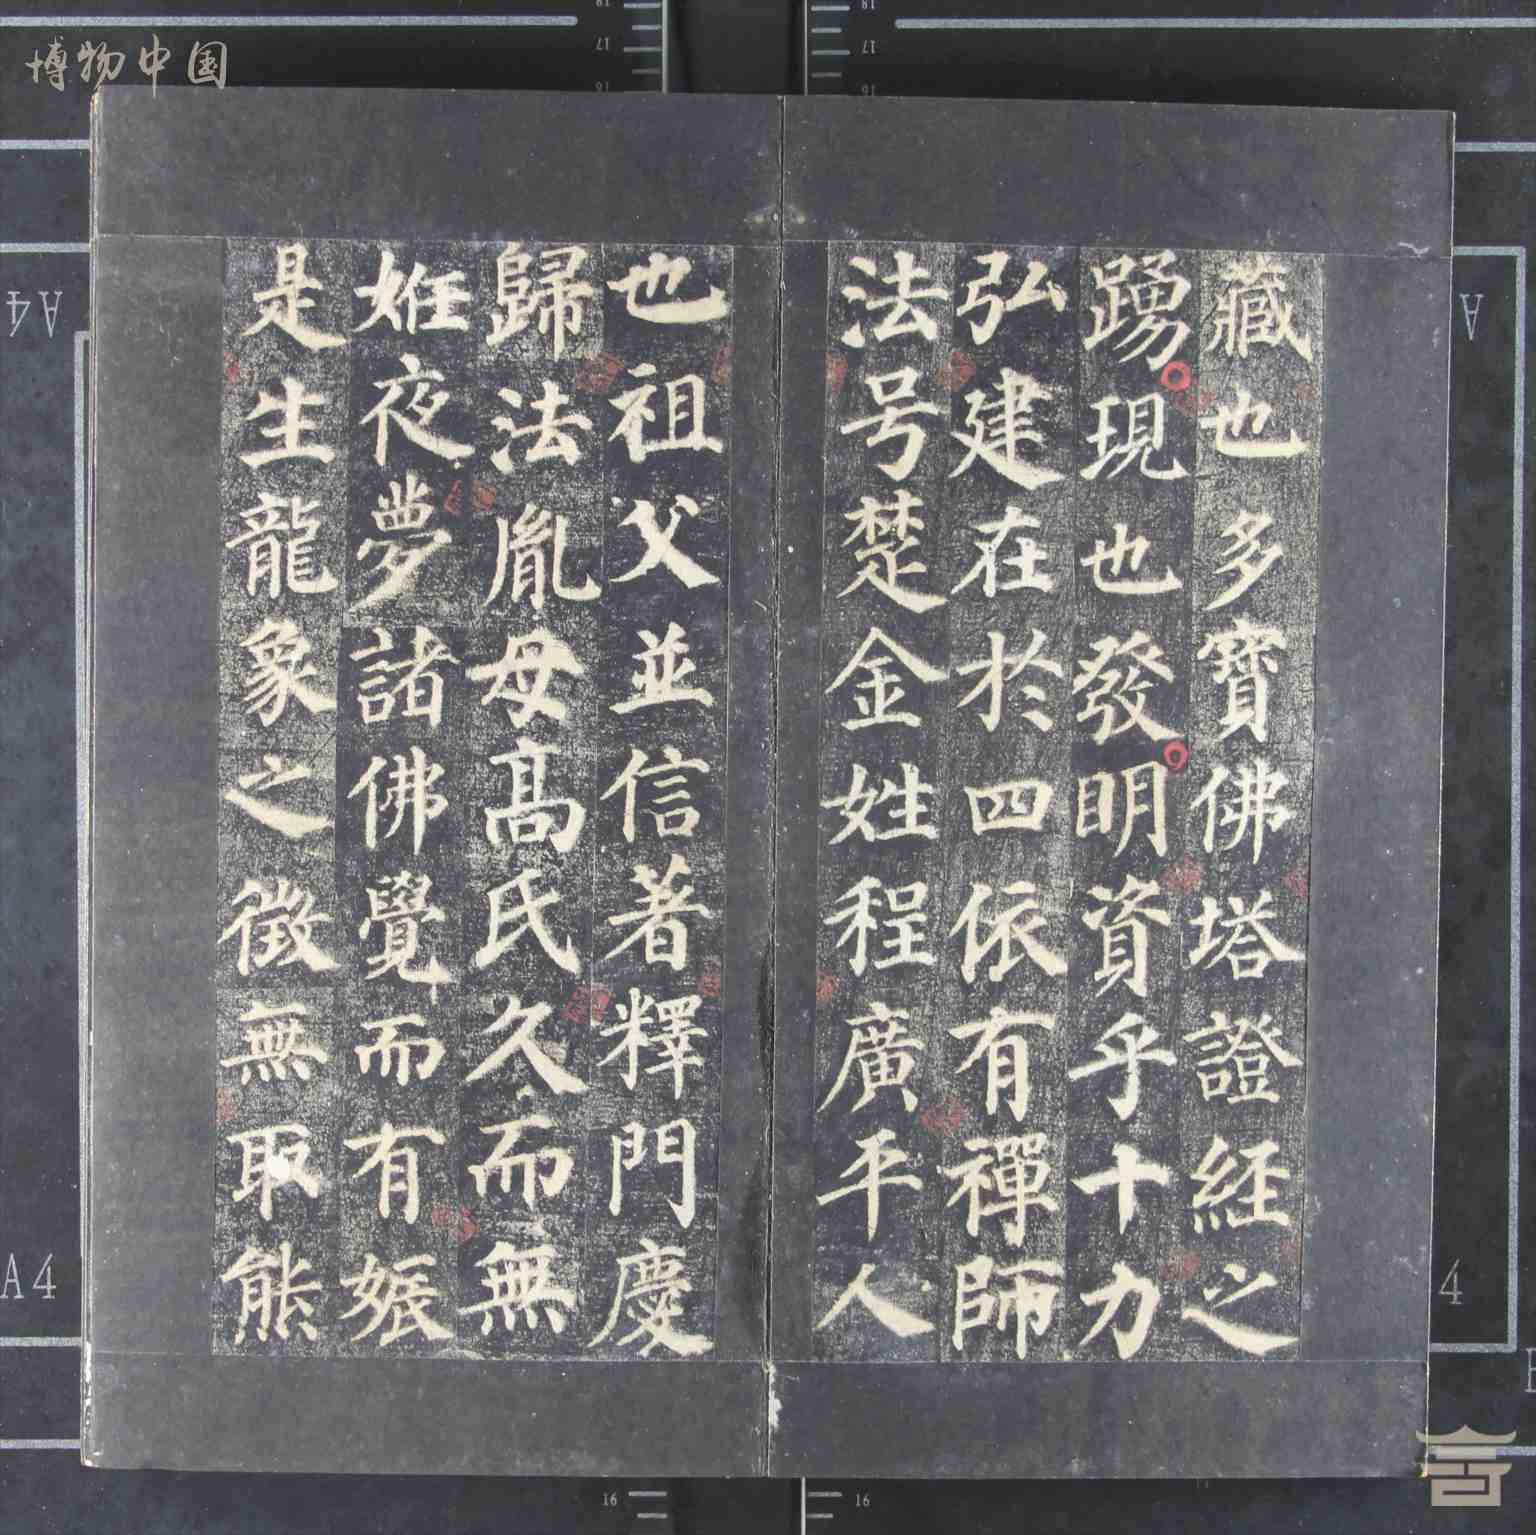 藏也多寶佛塔證經之
踴現也發明資乎十力
弘建在於四依有禪師
法号楚金姓程廣平人
也祖父並信著釋門慶
歸法胤母高氏久而無
姙夜夢諸佛覺而有娠
是生龍象之徵無取熊
博物中国
A4
A4
A
4
18
17
16
18
17
16
16
16